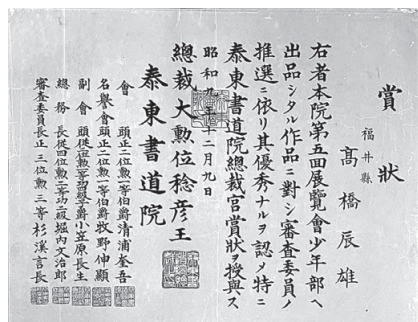 賞狀
福井縣
髙橋辰雄
右者本院第五回展覽會少年部ヘ
出品シタル作品ニ對シ審査委員ノ
推選ニ依リ其優秀ナルヲ認メ特ニ
泰東書道院總裁宮賞狀ヲ授與ス
昭和九年十二月九日
總裁大勳位稔彦王
泰東書道院
會頭正二位勳一等伯爵清浦奎吾
名譽會頭正二位勳一等伯爵牧野伸顯
副會頭 小笠原長生
總務長從四位勳三等功二級堀内文治郎
審査委員長正三位勳三等杉溪言長